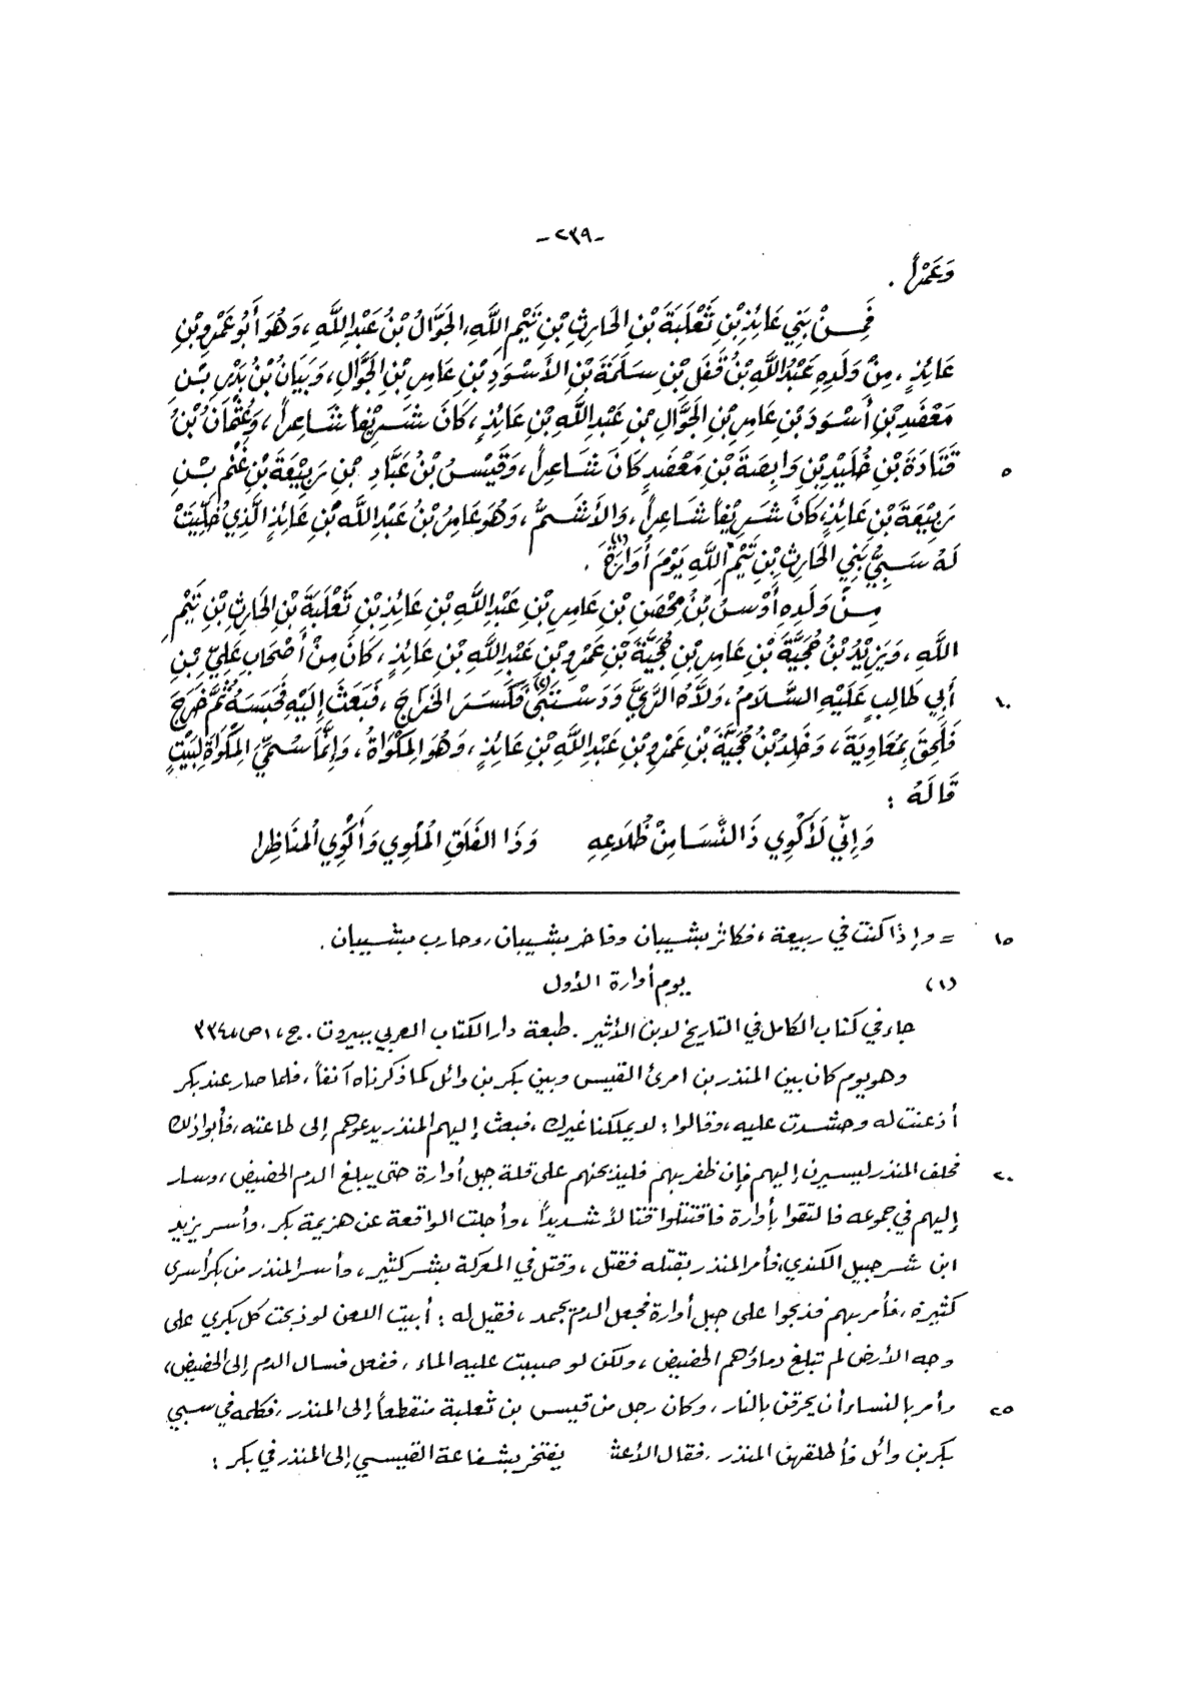 -٢٣٩-
وَعَمْراً .
فَمِنْ بَنِي عَائِذِ بْنِ ثَعْلَبَةَ بْنِ الحَارِثِ بْنِ تَيْمِ اللَّهِ، الجَوَّالُ بْنُ عَبْدِ اللَّهِ، وَهُوَ أَبُو عَمْرِو بْنِ
عَائِذٍ، مِنْ وَلَدِهِ عَبْدُ اللَّهِ بْنُ قَفَلِ بْنِ سَلَمَةَ بْنِ الأَسْوَدِ بْنِ عَامِرِ بْنِ الجَوَّالِ، وَبَيَانُ بْنُ بَدْرِ بْنِ
مَعْضَدِ بْنِ أَسْوَدَ بْنِ عَامِرِ بْنِ الجَوَّالِ بْنِ عَبْدِ اللَّهِ بْنِ عَائِذٍ، كَانَ شَرِيْفاً شَاعِراً، وَعُثْمَانُ بْنُ
قَتَادَةَ بْنِ خُلَيْدِ بْنِ وَابِصَةَ بْنِ مَعْضَدٍ كَانَ شَاعِراً، وَقَيْسُ بْنُ عَبَّادِ بْنِ رَبِيْعَةَ بْنِ غَنْمِ بْنِ
٥
رَبِيْعَةَ بْنِ عَائِذٍ، كَانَ شَرِيْفاً شَاعِراً، وَالأَشَمُّ، وَهُوَ عَامِرُ بْنُ عَبْدِ اللَّهِ بْنِ عَائِذٍ الَّذِي خُلِّيَتْ
لَهُ سَبِيُّ بَنِي الحَارِثِ بْنِ تَيْمِ اللَّهِ يَوْمَ أُوَارَةَ(١) .
مِنْ وَلَدِهِ أَوْسُ بْنُ مِحْصَنِ بْنِ عَامِرِ بْنِ عَبْدِ اللَّهِ بْنِ عَائِذِ بْنِ ثَعْلَبَةَ بْنِ الحَارِثِ بْنِ تَيْمِ
اللَّهِ، وَيَزِيْدُ بْنُ حُجَيَّةَ بْنِ عَامِرِ بْنِ حُجَيَّةَ بْنِ عَمْرِو بْنِ عَبْدِ اللَّهِ بْنِ عَائِذٍ، كَانَ مِنْ أَصْحَابِ عَلِيِّ بْنِ
أَبِي طَالِبٍ عَلَيْهِ السَّلَامُ، وَلَّاهُ الرَّيَّ وَدَسْتَبَى(٢) فَكَسَرَ الخَرَاجَ، فَبَعَثَ إِلَيْهِ فَحَبَسَهُ ثُمَّ خَرَجَ
١٠
فَلَحِقَ بِمُعَاوِيَةَ، وَخَالِدُ بْنُ حُجَيَّةَ بْنِ عَمْرِو بْنِ عَبْدِ اللَّهِ بْنِ عَائِذٍ، وَهُوَ المِكْوَاةُ، وَإِنَّمَا سُمِّيَ المِكْوَاةَ لِبَيْتٍ
قَالَهُ :
وَإِنِّي لَأَكْوِي ذَا النَّسَا مِنْ ظُلَاعِهِ وَذَا الفَلَقِ المَلْوِي وَأَكْوِي المَنَاظِرا
= وإذا كنت في ربيعة، فكاثر بشيبان وفاخر بشيبان، وحارب بشيبان .
١٥
(١) يوم أوارة الأول
جاء في كتاب الكامل في التاريخ لابن الأثير . طبعة دار الكتاب العربي ببيروت . ج، ١ ص، ٣٣٤
وهو يوم كان بين المنذر بن امرئ القيس وبين بكر بن وائل كما ذكرناه آنفاً، فلما صار عند بكر
أذعنت له وحشدت عليه، وقالوا : لا يملكنا غيرك، فبعث إليهم المنذر يدعوهم إلى طاعته، فأبوا ذلك
فحلف المنذر ليسيرن إليهم فإن ظفر بهم فليذبحنهم على قلة جبل أوارة حتى يبلغ الدم الحضيض، وسار
٢٠
إليهم في جموعه فالتقوا بأوارة فاقتتلوا قتالاً شديداً، وأجلت الواقعة عن هزيمة بكر، وأسر يزيد
ابن شرحبيل الكندي، فأمر المنذر بقتله فقتل، وقتل في المعركة بشر كثير، وأسر المنذر من بكر أسرى
كثيرة، فأمر بهم فذبحوا على جبل أوارة فجعل الدم يجمد، فقيل له : أبيت اللعن لو ذبحت كل بكري على
وجه الأرض لم تبلغ دماؤهم الحضيض، ولكن لو صببت عليه الماء، ففعل فسال الدم إلى الحضيض،
وأمر بالنساء أن يحرقن بالنار، وكان رجل من قيس بن ثعلبة منقطعاً إلى المنذر، فكلمه في سبي
٢٥
بكر بن وائل فأطلقهن المنذر، فقال الأعشى يفتخر بشفاعة القيسي إلى المنذر في بكر :